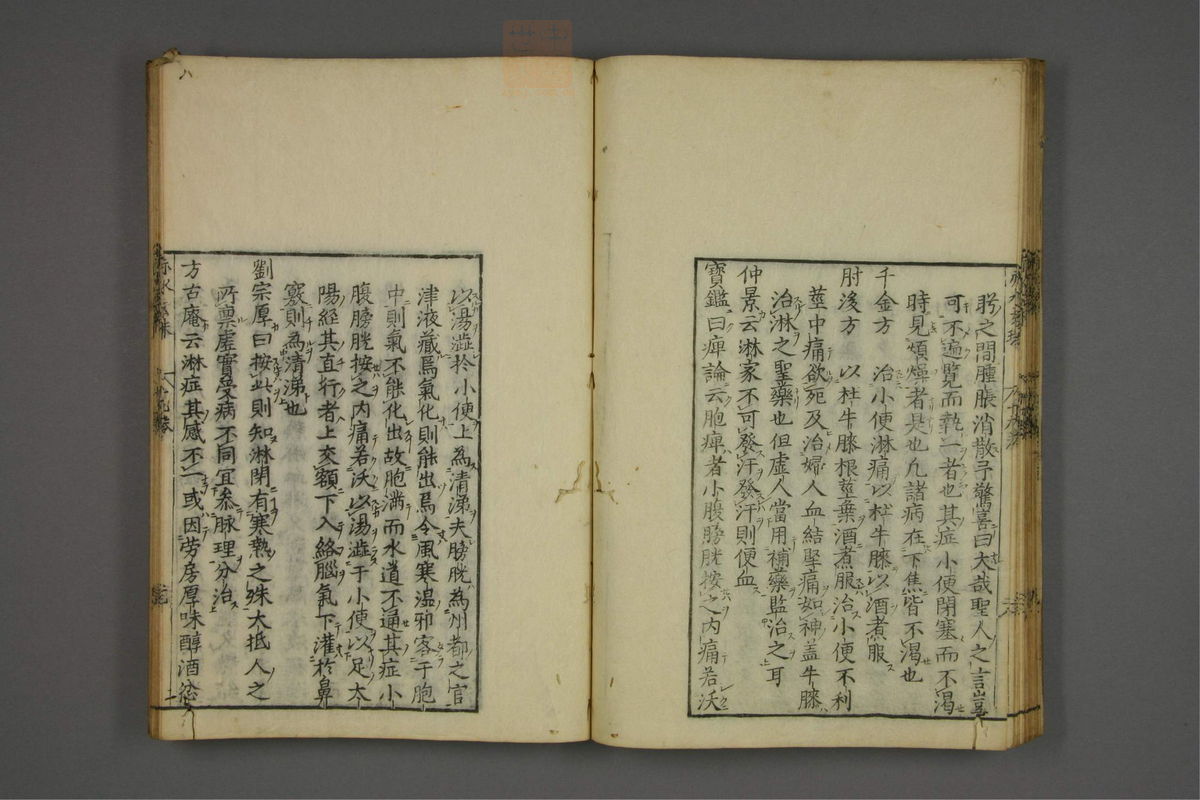 腭之間腫脹消散予驚喜曰大哉聖人之言豈
可不遍覽而執一者也其症小便閉塞而不渴
時見煩燥者是也凡諸病在下焦皆不渴也
千金方 治小便淋痛以杜牛膝以酒煮服
肘後方 以杜牛膝根莖葉酒煮服治小便不利
莖中痛欲死及治婦人血結堅痛如神蓋牛膝
治淋之聖藥也但虛人當用補藥監治之耳
仲景云淋家不可發汗發汗則便血
寶鑑曰痺論云胞痺者小腹膀胱按之內痛若沃
以湯澁於小便上為清涕夫膀胱為州都之官
津液藏焉氣化則能出焉今風寒濕邪客于胞
中則氣不能化出故胞滿而水道不通其症小
腹膀胱按之內痛若沃以湯澁于小便以足太
陽經其直行者上交額下入絡腦氣下灌於鼻
竅則為清涕也
劉宗厚曰按此則知淋閉有寒熱之殊大抵人之
所稟虛實受病不同宜參脉理分治
方古庵云淋症其感不一或因劳房厚味醇酒忿